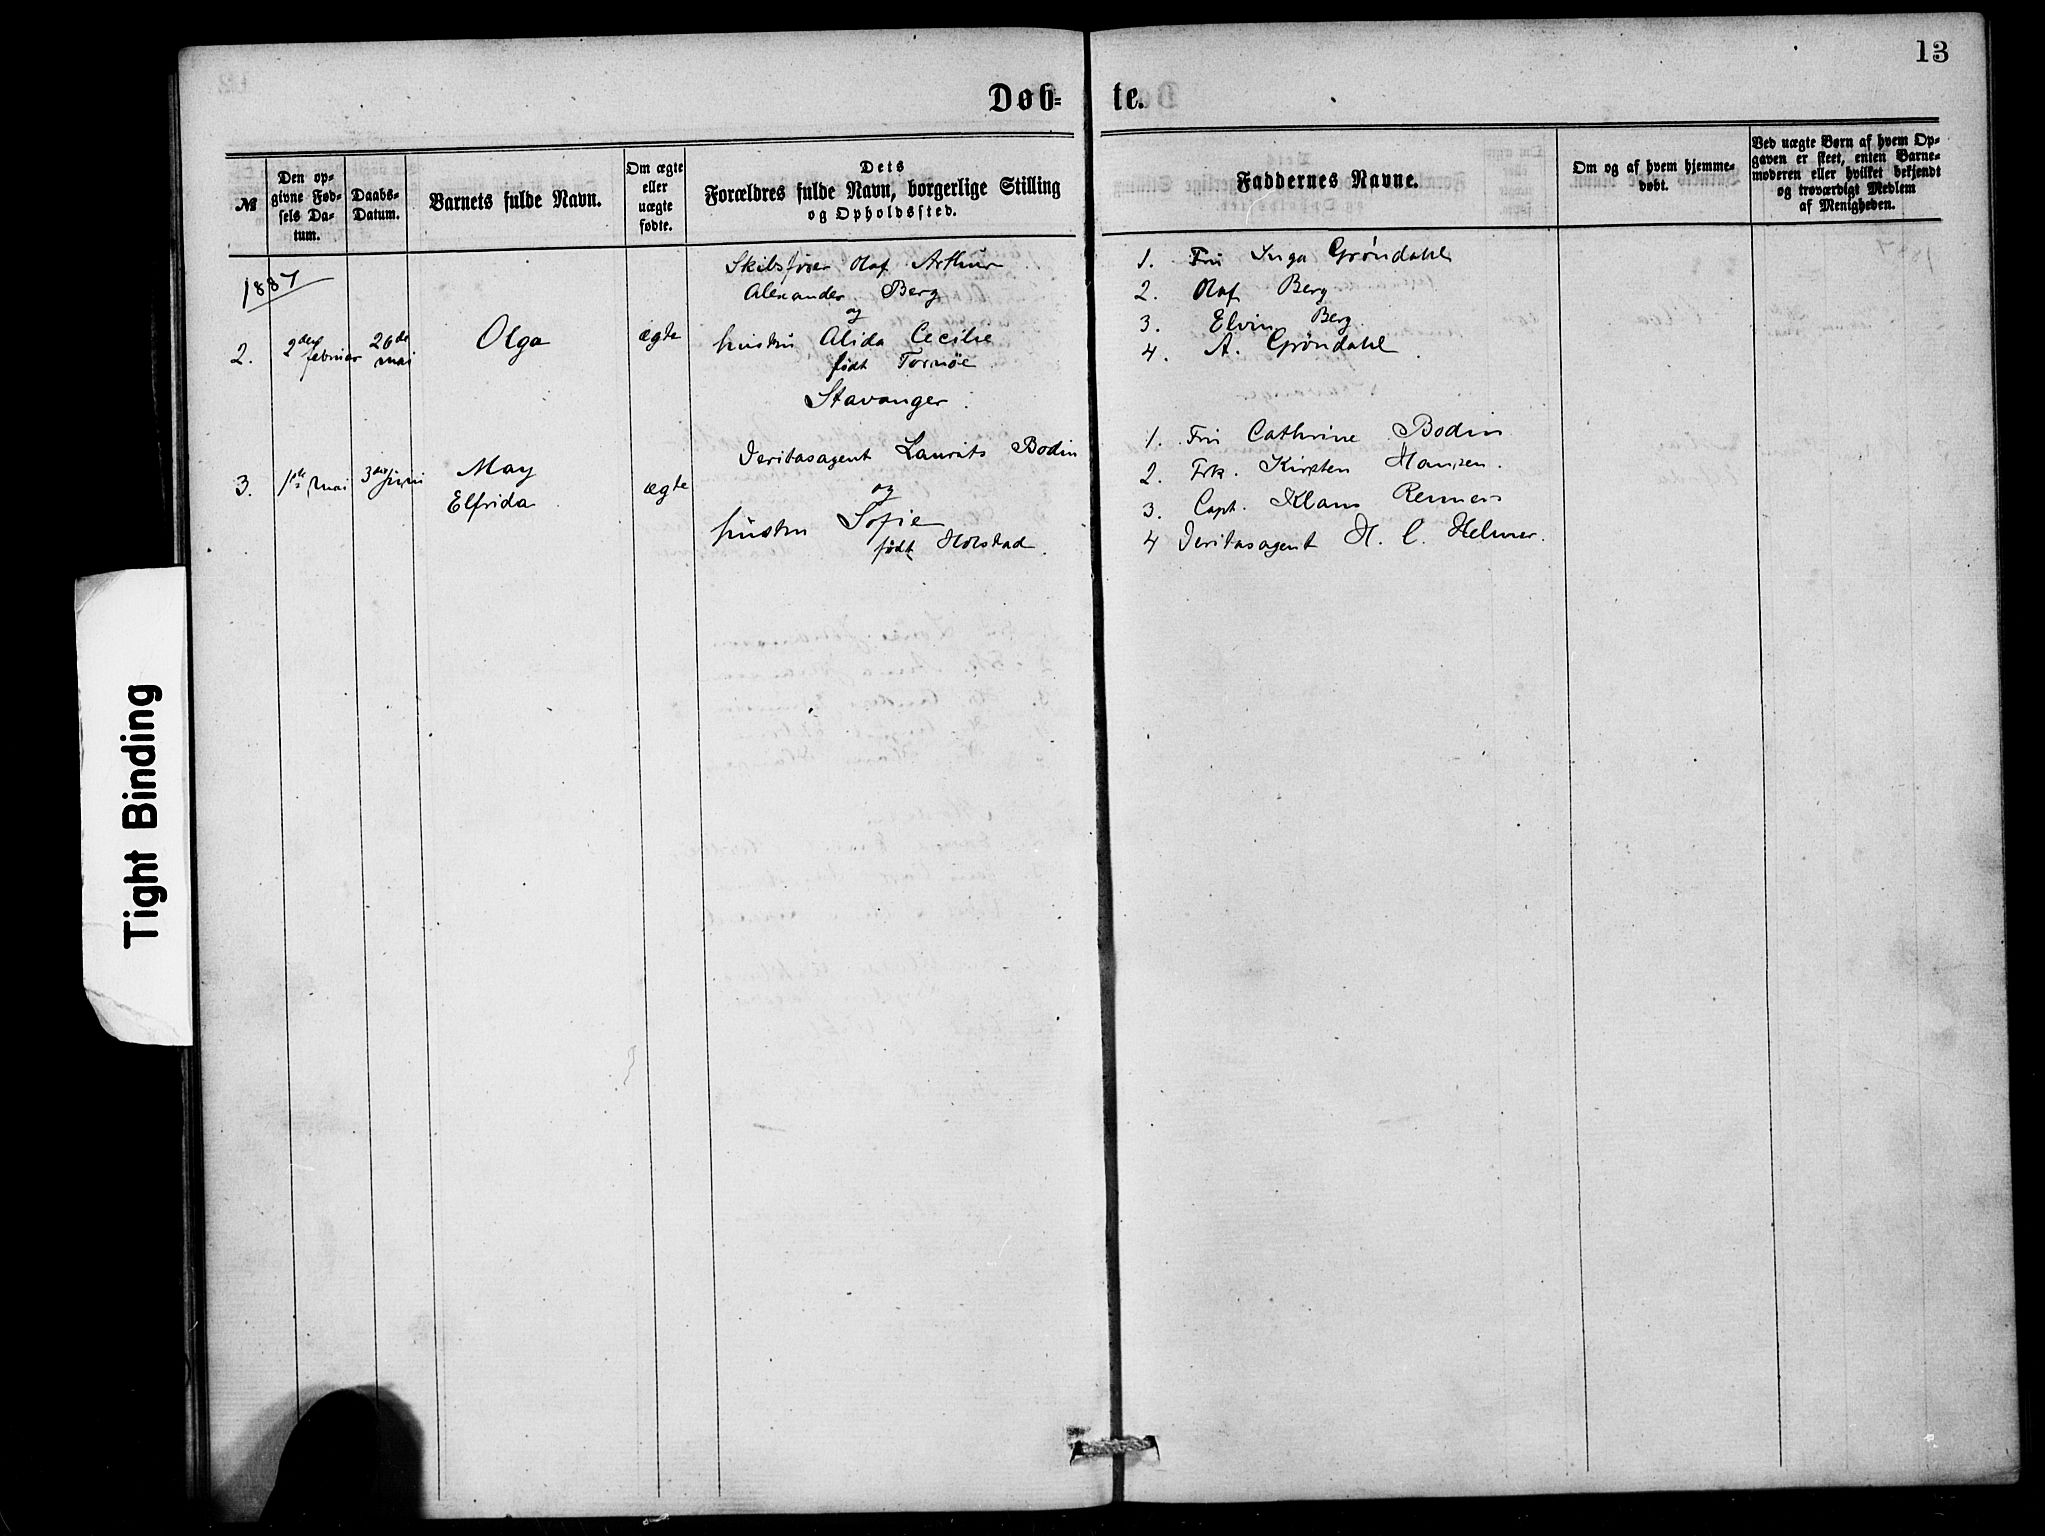 13
Døb-
te.
№
Den op-
givne Fød-
sels Da-
tum.
Daabs-
Datum.
Barnets fulde Navn.
Om ægte
eller
uægte
fødte.
Dets
Forældres fulde Navn, borgerlige Stilling
og Opholdssted.
Faddernes Navne.
Om og af hvem hjemme-
døbt.
Ved uægte Børn af hvem Op-
gaven er skeet, enten Barne-
moderen eller hvilket bekjendt
og troværdigt Medlem
af Menigheden.
1887
2.
2den
februar
26de
mai
Olga
ægte
Skibsfører Olaf Arthur
Alexander Berg
og
hustru Alida Cecilie
født Tornøe
Stavanger.
1. Fru Inga Grøndahl
2. Olaf Berg
3. Elvin Berg
4. A. Grøndahl.
3.
1ste mai
3die juni
May
Elfrida
ægte
Veritasagent Laurits Bodin
og
hustru Sofie
født Holstad.
1. Fru Cathrine Bodin
2. Frk. Kirsten Hansen.
3. Capt. Klaus Reimers
4 Veritasagent H. C. Helmer.
Tight Binding